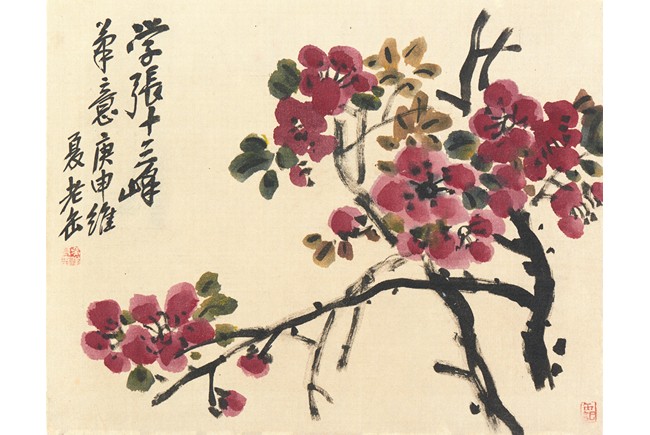 学張十三峰
筆意庚申維
夏老缶